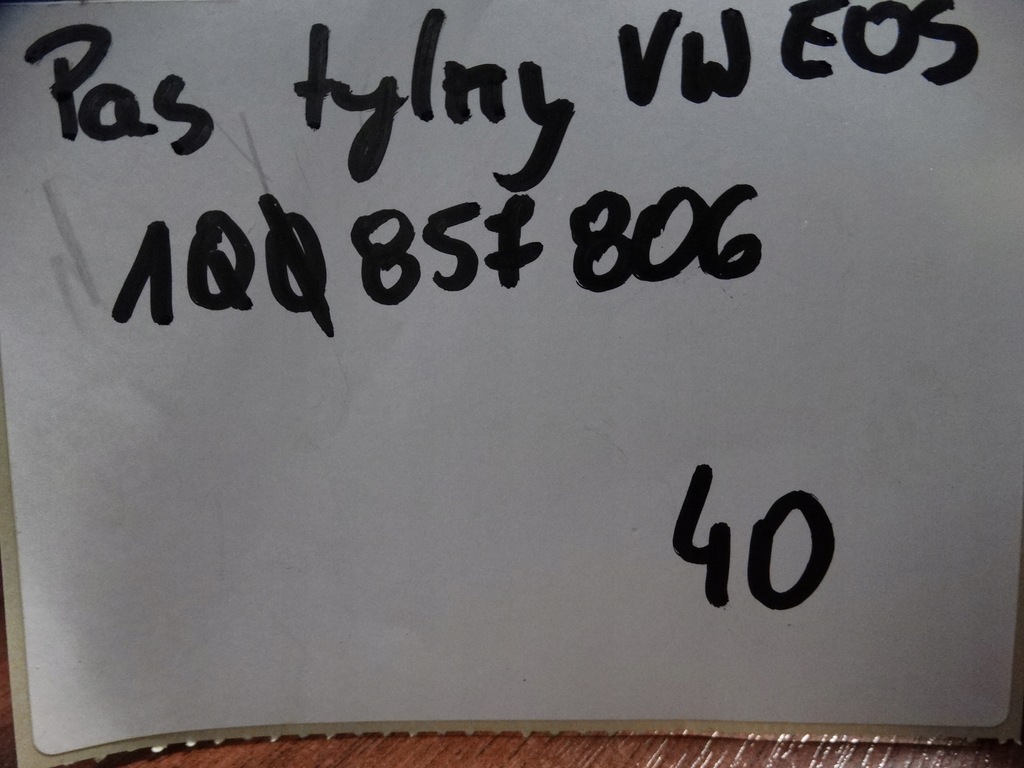 Pas tylny VW EOS
1Q0 857 806
40